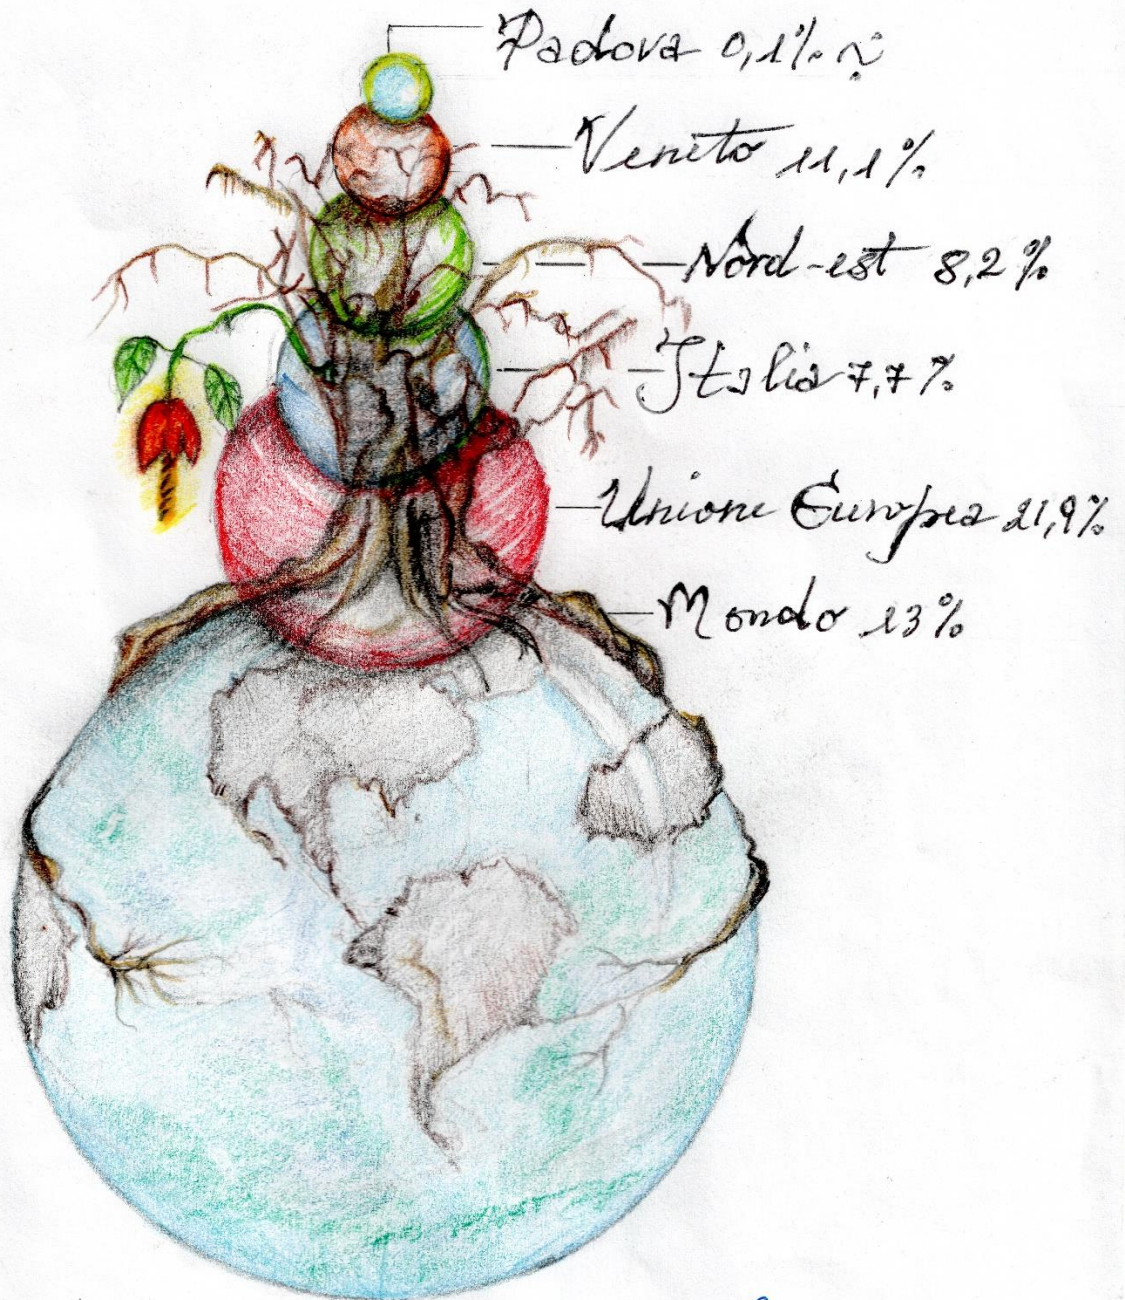 Padova 0,1% ~
Veneto 11,1%
Nord-est 8,2%
Italia 7,7%
Unione Europea 21,9%
Mondo 13%